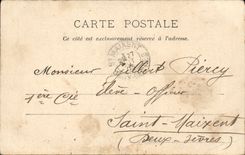 CARTE POSTALE
Ce côté est exclusivement réservé à l'adresse.
Monsieur Gilbert Piercy
1ère Cie Élève-Officier
Saint-Maixent
(Deux-Sèvres)